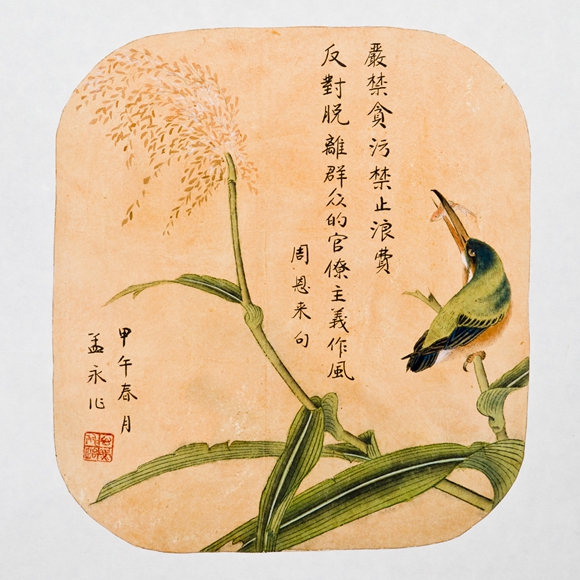 嚴禁貪污禁止浪費
反對脱離群众的官僚主義作風
周恩来句
甲午春月
孟永作